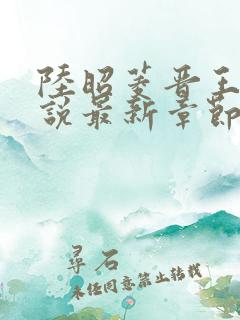 陸昭菱晋王
說最新章節
尋石
未経同意禁止转载